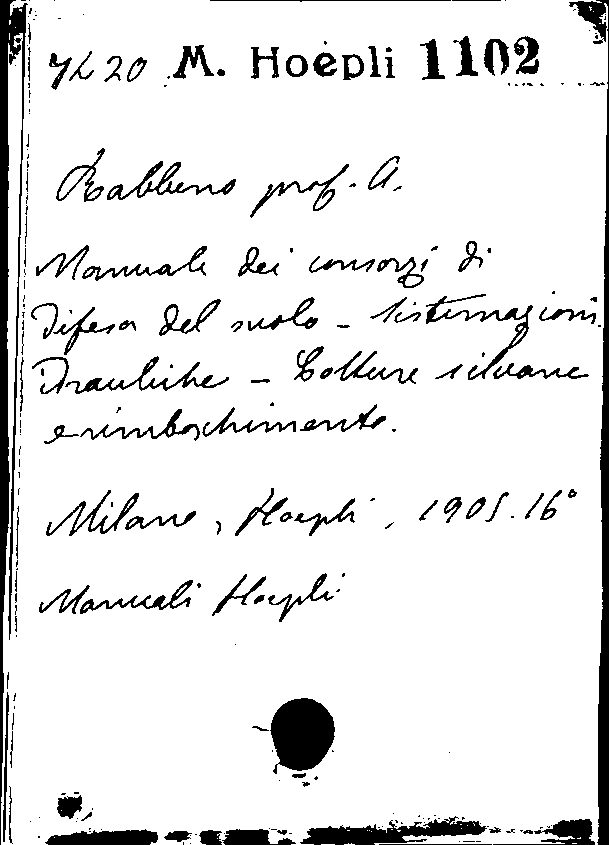 7220 M. Hoepli 1102
Rabbeno prof. A.
Manuale dei consorzi di
difesa del suolo - Sistemazioni
Idrauliche - Colture silvane
e rimboschimento.
Milano, Hoepli, 1905. 16°
Manuali Hoepli